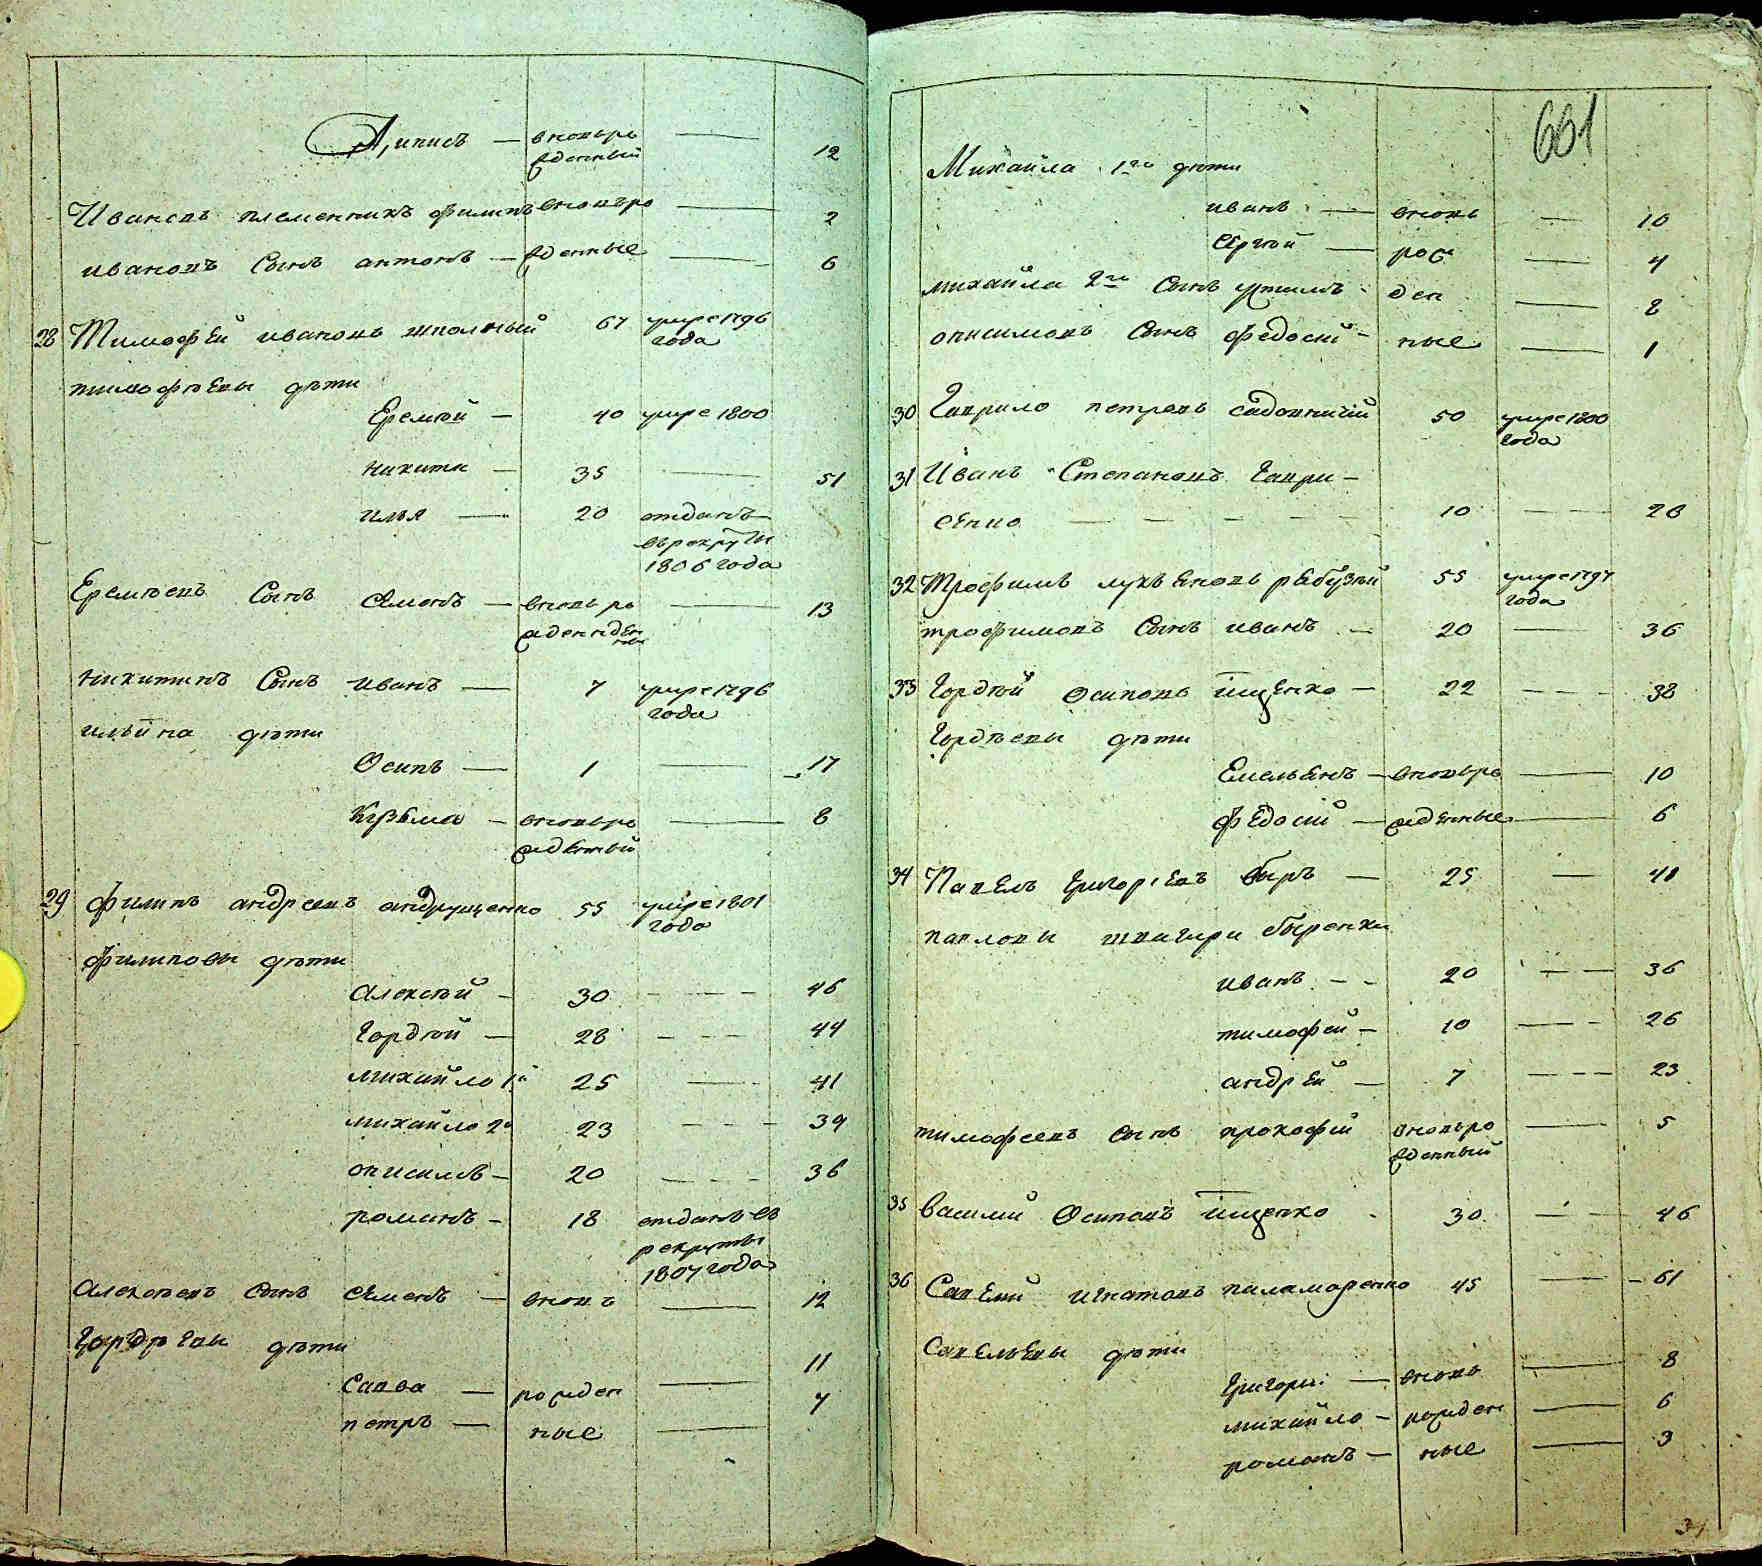 Архипъ — вновьро
жденный — 12
Ивановъ племенникъ филипъ вновьро — 2
ивановъ сынъ антонъ — жденные — 6
28 Тимофей ивановъ шполный 67 умре 1796
года
тимофѣевы дѣти
Еремѣй — 40 умре 1800
никита — 35 — 51
илья — 20 отданъ
въ рекруты
1806 года
Еремѣевъ сынъ семенъ — вновьро — 13
никитинъ сынъ иванъ — 7 умре 1796
года
ильйна дѣти
Осипъ — 1 — 17
кузьма — вновьро — 8
жденный
29 филипъ андреевъ андрущенко 55 умре 1801
года
филиповы дѣти
алексѣй — 30 — 46
гордѣй — 28 — 44
михайло 1й 25 — 41
михайло 2й 23 — 39
онисимъ — 20 — 36
романъ — 18 отданъ въ
рекруты
1807 года
алексѣевъ сынъ семенъ — вновь — 12
гордѣевы дѣти
савва — рожден — 11
петръ — ные — 7
661
Михайла 1го дѣти
иванъ — вновь — 10
сергѣй — рож — 4
михайла 2го сынъ — ден — 8
онисимовъ сынъ федосій — ные — 1
30 Гаврило петровъ садовничій 50 умре 1800
года
31 Иванъ Степановъ Гаври-
сенко — 10 — 26
32 Трофимъ лукьяновъ 55 умре 1797
года
трофимовъ сынъ иванъ — 20 — 36
33 Гордѣй осиповъ їщенко — 22 — 38
Гордѣевы дѣти
Емельянъ — вновьро — 10
федосій — жденные — 6
34 Павелъ григорьевъ быръ — 25 — 41
павловы швагри быренки
иванъ — 20 — 36
тимофей — 10 — 26
андрей — 7 — 23
тимофеевъ сынъ прокофій вновьро — 5
жденный
35 василий Осиповъ їщенко 30 — 46
36 Савелий игнатовъ паламаренко 45 — 61
савельевы дѣти
григорий — вновь — 8
михайло — рожден — 6
романъ — ные — 3